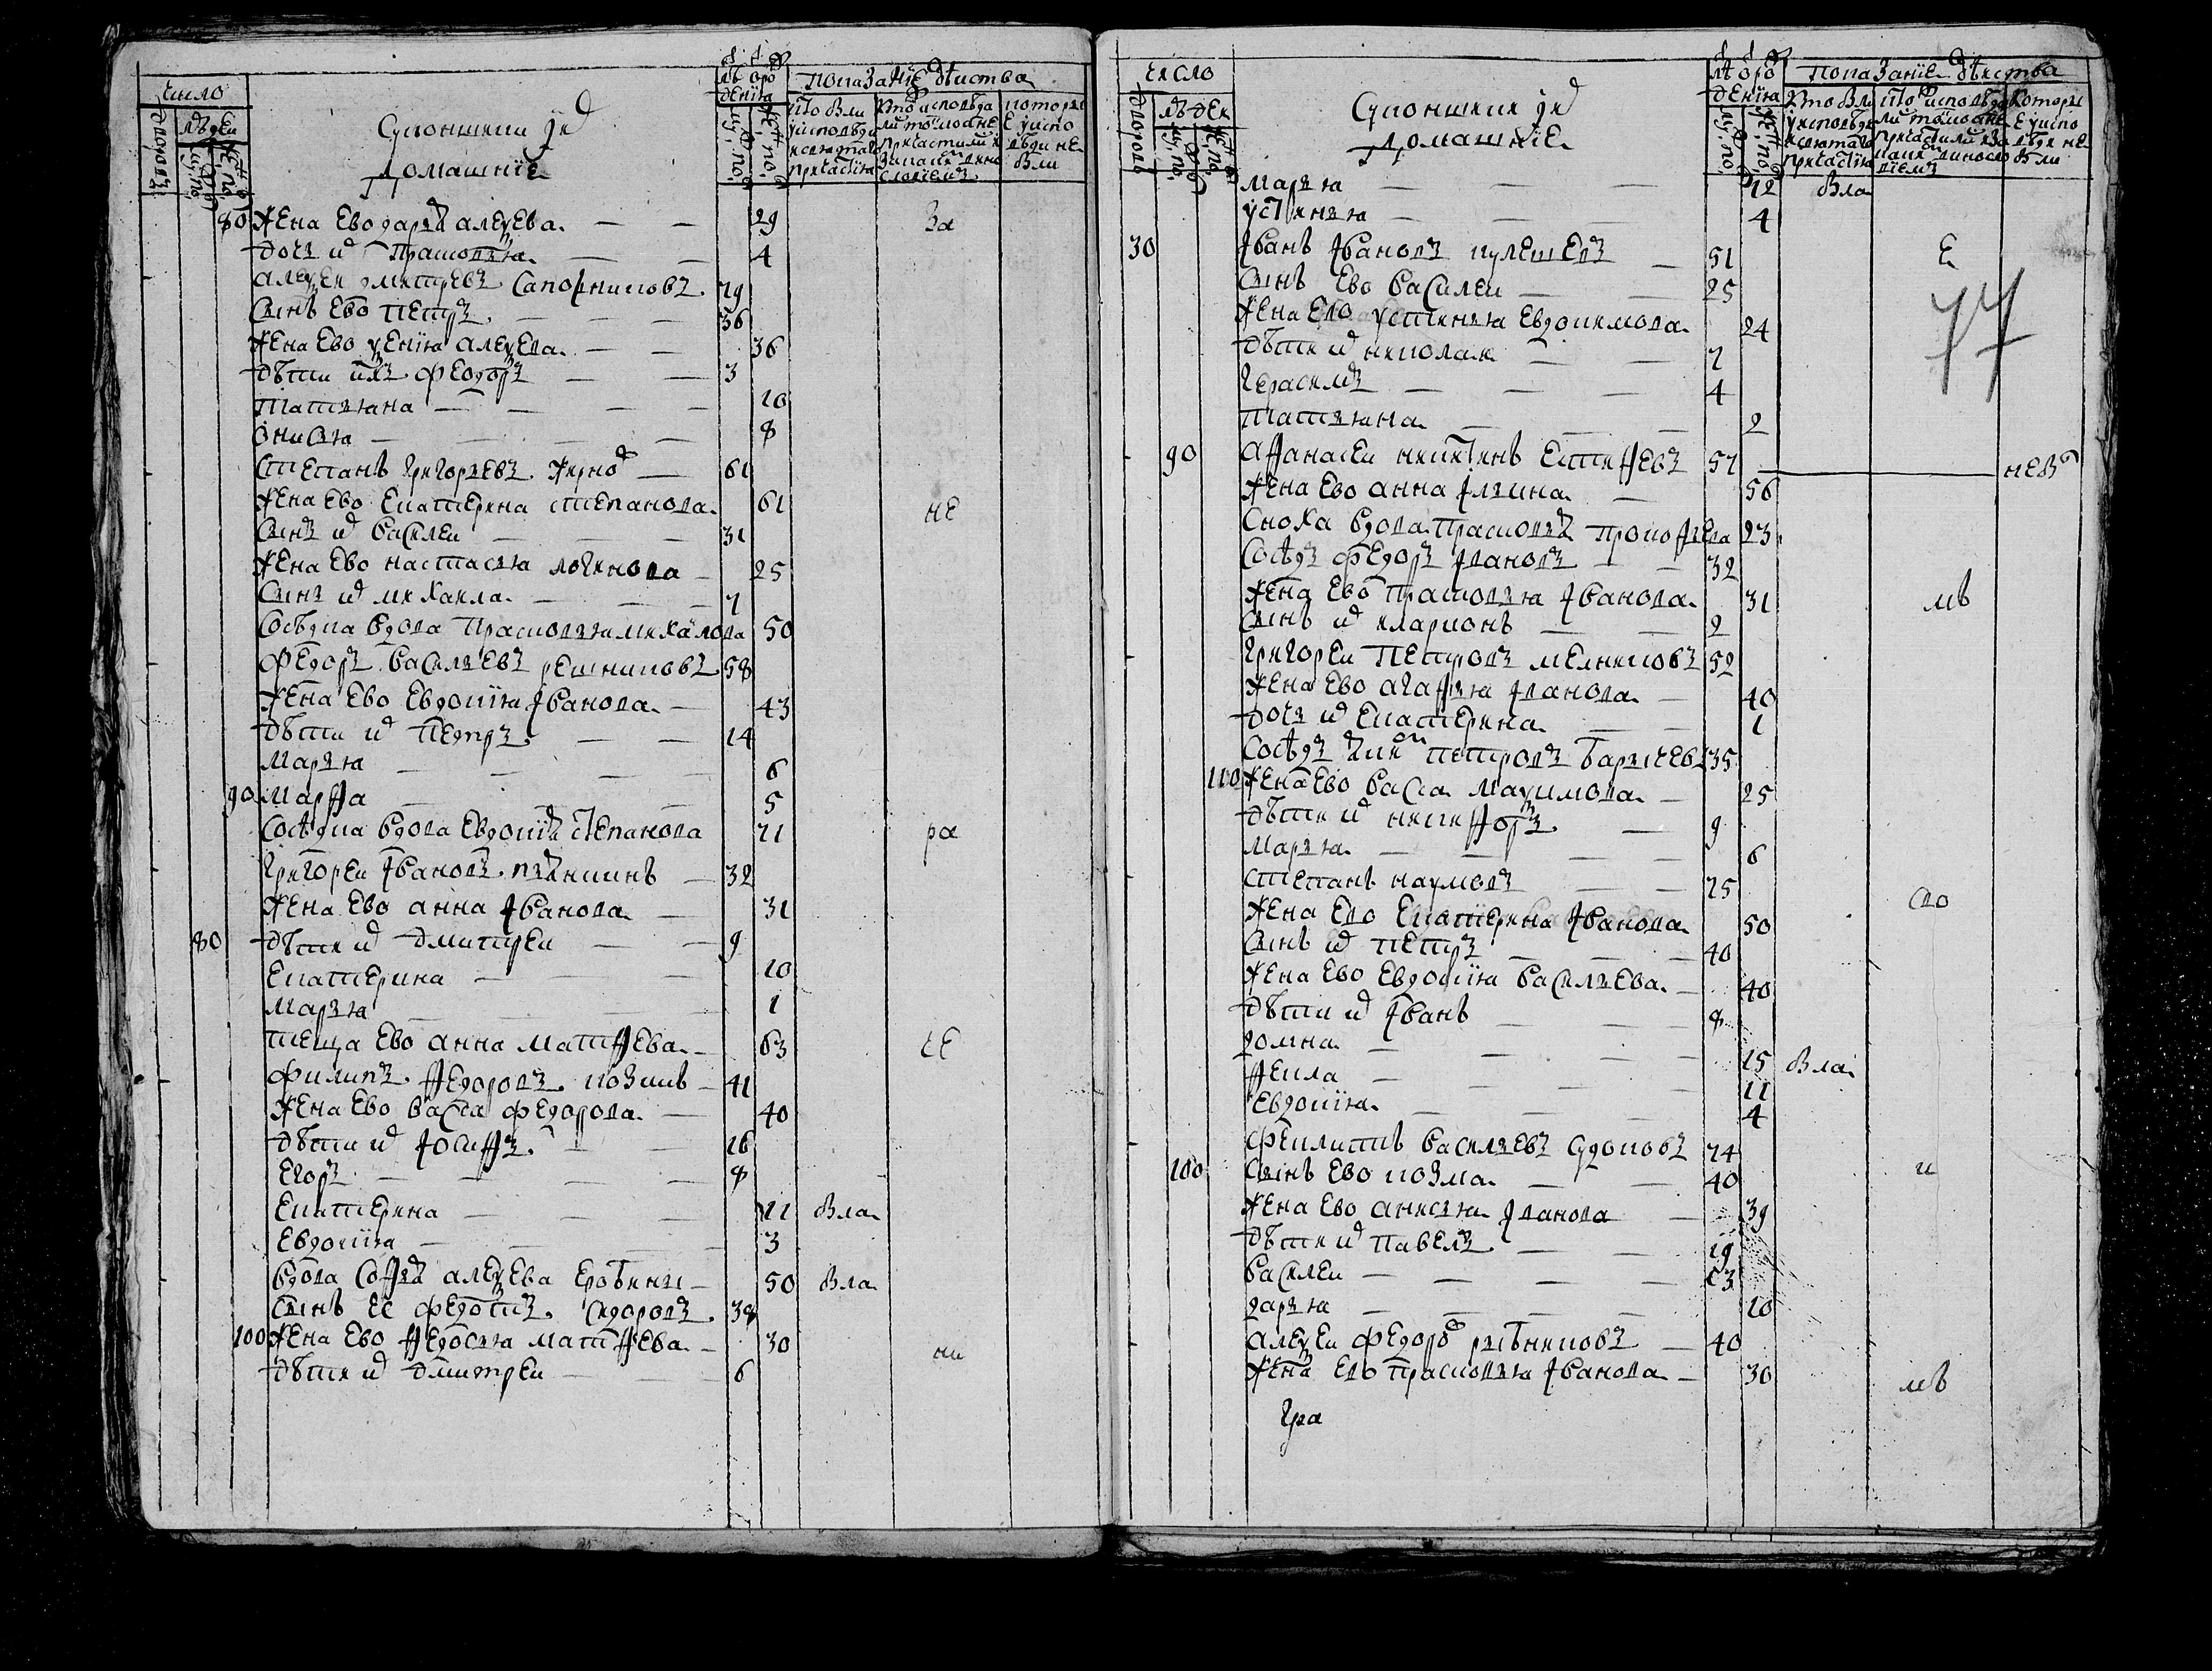 число
людеи
дворовъ
муж: по:
жен: по:
Суконщики и их
домашние
лѣ от рождения
муж: по:
жен: по:
показание действа
кто были у исповеди и святаго причастия
кто исповедались токмо а не причастились и за каким виновословием
которые у исповеди не были
80 жена ево дарья алексева 29 за
дочь их Прасковья 4
алексеи дмитревъ Сапожниковъ 79
Сынъ ево петръ 36
жена ево ксения алексева 36
дѣти их федоръ 3
татьяна 10
онисья 8
Степанъ григорьевъ 61
жена ево екатерина степанова 61 не
Сынъ их василеи 31
жена ево настасья логинова 25
Сынъ их михаила 7
Соседка вдова Прасковья михаилова 50
федоръ васильевъ решниковъ 58
жена ево евдокия иванова 43
дѣти их Педтръ 14
марья 6
90 марфа 5
Соседка вдова евдокия степанова 71 ра
григореи ивановъ 32
жена ево анна иванова 31
80 дѣти их дмитреи 9
екатерина 10
марья 1
теща ево анна матфева 63 че
филипъ федоровъ козинъ 41
жена ево васса федорова 40
дѣти их иосифъ 16
егоръ 8
екатерина 11 была
евдокия 3
вдова софья алексева 50 была
Сынъ ее федотъ сидоровъ 38
100 жена ево федосья матфева 30 ни
дѣти их дмитреи 6
число
людеи
дворовъ
муж: по:
жен: по:
Суконщики и их
домашние
лѣ от рождения
муж: по:
жен: по:
показание действа
кто были у исповеди и святаго причастия
кто исповедались токмо а не причастились и за каким виновословием
которые у исповеди не были
марья 12 была
устинья 4
30 иванъ ивановъ кулешевъ 51 е
77
Сынъ ево василеи 25
жена ево устинья евдокимова 24
дѣти их николаи 7
герасимъ 4
татьяна 2
90 афанасеи никитинъ 57 не бы
жена ево анна ильина 56
Сноха вдова прасковья прокофьева 23
Соседъ федоръ ивановъ 32
жена ево прасковья иванова 31 мѣ
Сынъ их иларионъ 2
григореи петровъ мельниковъ 52
жена ево агафья иванова 40
дочь их екатерина 1
Соседъ петровъ 35
100 жена ево васса максимова 25
дѣти их никифоръ 9
марья 6
степанъ наумовъ 75
жена ево екатерина иванова 50 сло
Сынъ их петръ 40
жена ево евдокия васильева 40
дѣти их иванъ 8
домна 15 была
фекла 11
евдокия 4
филипъ васильевъ судоковъ 74
100 Сынъ ево козма 40 и
жена ево анисья иванова 39
дѣти их павелъ 19
василеи 13
дарья 10
алексеи федоров рыбниковъ 40
жена ево прасковья иванова 30 мѣ